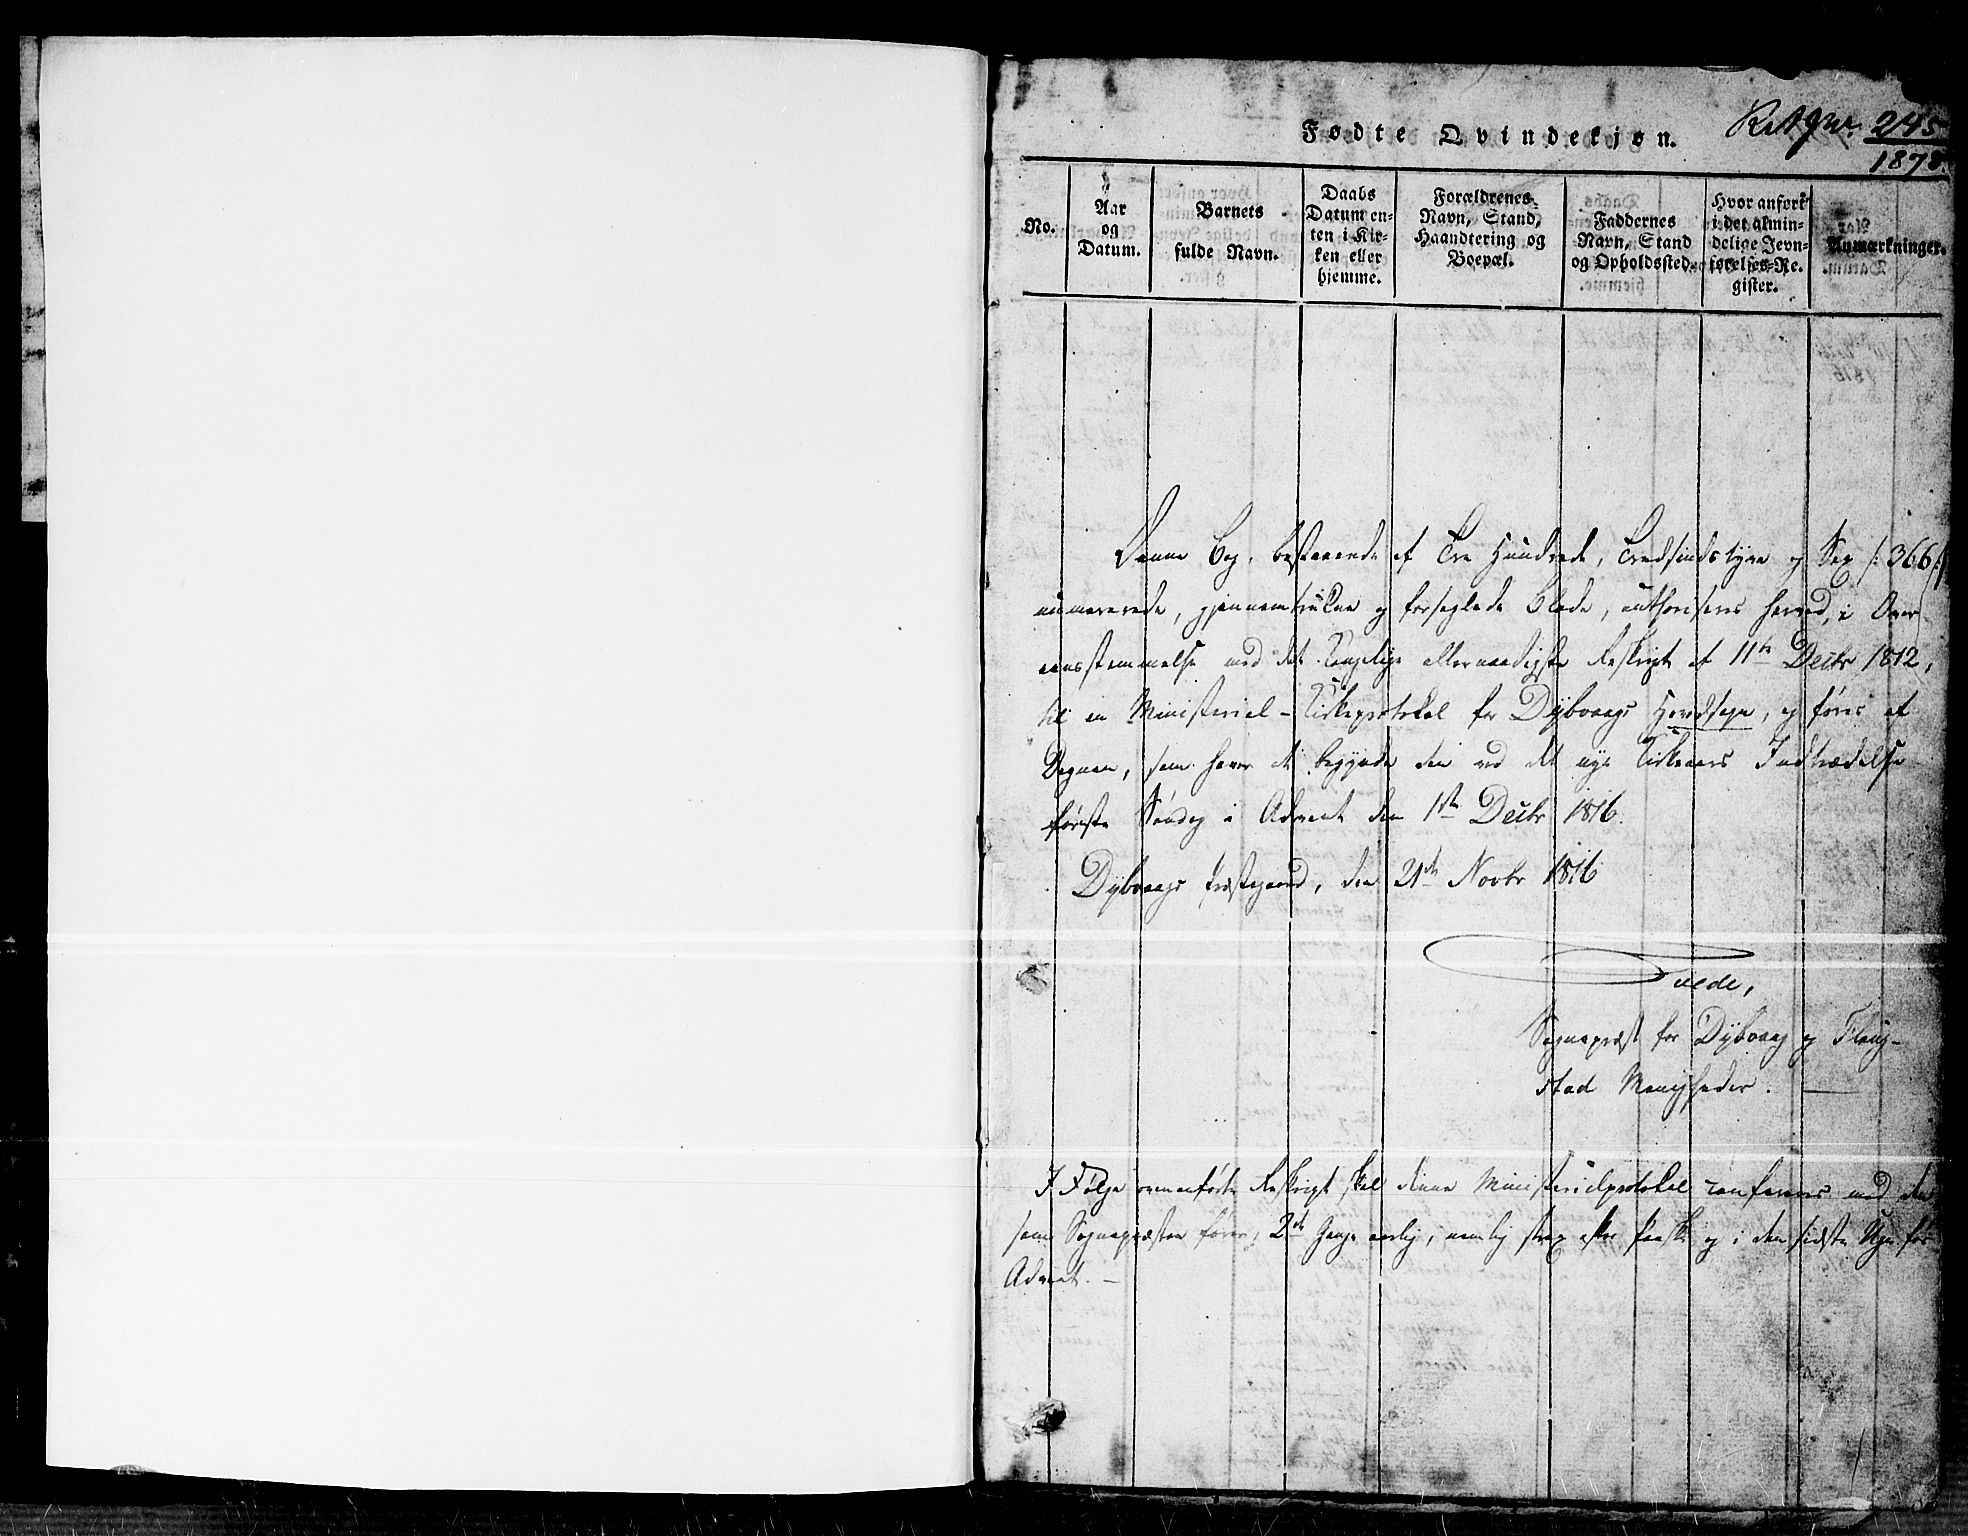 Fødte Qvindekjøn.
245
1878.
No.
Aar
og
Datum.
Barnets
fulde Navn.
Daabs
Datum en-
ten i Kir-
ken eller
hjemme.
Forældrenes
Navn, Stand,
Haandtering og
Boepæl.
Faddernes
Navn, Stand
og Opholdssted.
Hvor anført
i det almin-
delige Jevn-
førelses-Re-
gister.
Anmærkninger.
Denne Bog, bestaaende af Tre Hundrede, Tredsindstyve og Sex /:366:/
numererede, gjennemtrukne og forseglede Blade, authoriseres herved, i Over-
eensstemmelse med det Kongelige allernaadigste Reskript af 11te Decbr 1812,
til en Ministerial-Kirkeprotokol for Dybvaags Hovedsogn, og føres af
Degnen, som haver at begynde den ved det nye Kirkeaars Indtrædelse
første Søndag i Advent den 1ste Decbr 1816.
Dybvaags Præstegaard, den 21de Novbr 1816
Sognepræst for Dybvaag og Flang-
stad Menigheder.
I Følge ovenanførte Reskript skal denne Ministerialprotokol confereres med den
som Sognepræsten fører, 2de Gange aarlig, nemlig strax efter Paaske og i den sidste Uge før
Advent. –